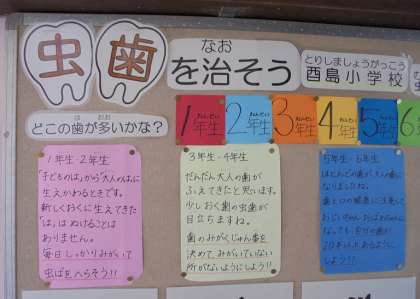 虫歯
なお
を治そう
とりしましょうがっこう
酉島小学校
は おお
どこの歯が多いかな?
1年生
2年生
3年生
4年生
5年生
6
1年生・2年生
「子どものは」から「大人のは」に
生えかわるときです。
新しくおくに生えてきた
「は」はぬけることは
ありません。
毎日しっかりみがいて
虫ばをへらそう!!
3年生・4年生
だんだん大人の歯が
ふえてきたと思います。
少しおく歯の虫歯が
目立ちますね。
歯のみがくじゅん番を
決めてみがいていない
所がないようにしよう!!
5年生・6年生
ほとんどの歯が大人の歯に
なりましたね。
歯と口の健康に注意して
おじいちゃん、おばあちゃんに
なっても、自分の歯が
20本以上あるように
しよう!!